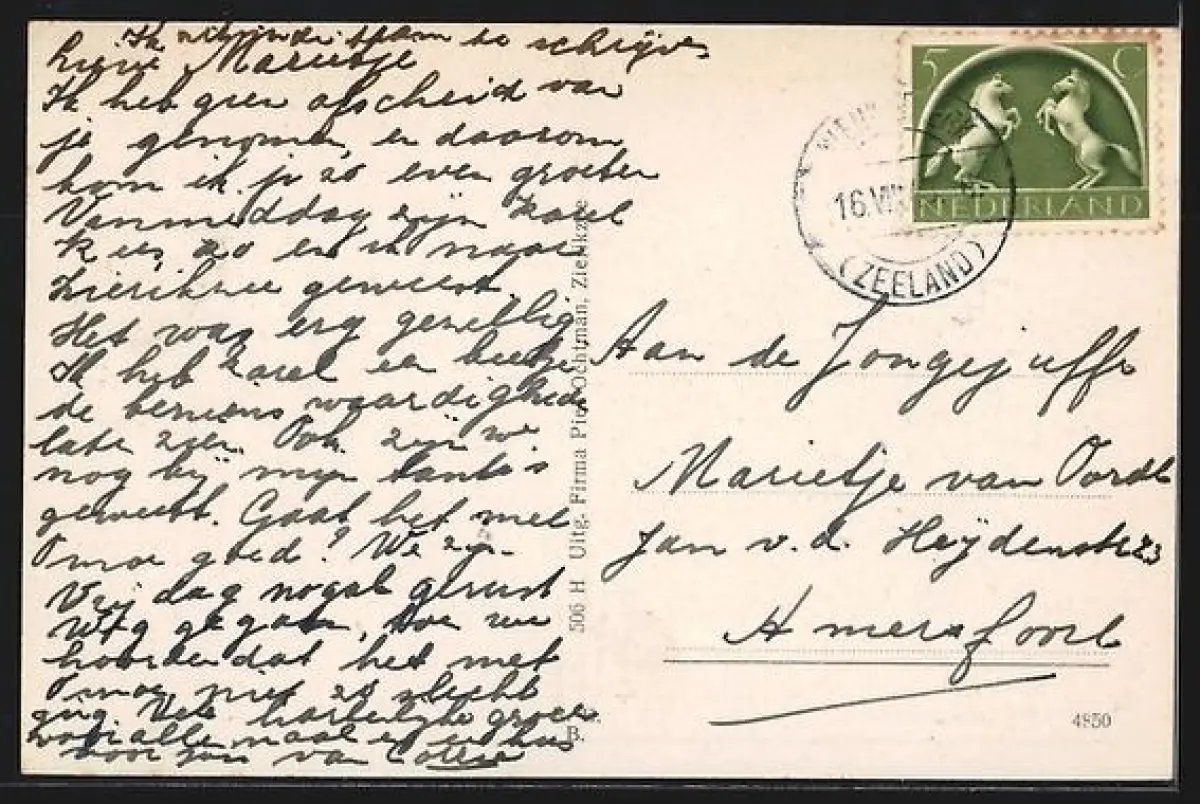 Ik te schrijven
Lieve Marietje
Ik heb geen afscheid van
je genomen, en daarom
kom ik je zo even groeten
Vanmiddag zijn Karel
Kees, zo en ik naar
Zierikzee geweest.
Het was erg gezellig
Ik heb Karel een beetje
de beziens waardighede
late zien. Ook zijn we
nog bij mijn tante's
geweest. Gaat het met
Omoe goed? We zijn
Vrijdag nogal gerust
weg gegaan, toe we
hoorde dat het met
Omoe niet zo slecht
ging. Vele hartelijke groete
voor alle maal en een kus
voor jou van Corrie
506 H Uitg. Firma Piet Ochtman, Zierikzee
B.
5 C
NEDERLAND
16.VII
(ZEELAND)
Aan de Jongejuffr
Marietje van Oordt
Jan v.d. Heijdenstr 23
Amersfoort
4850